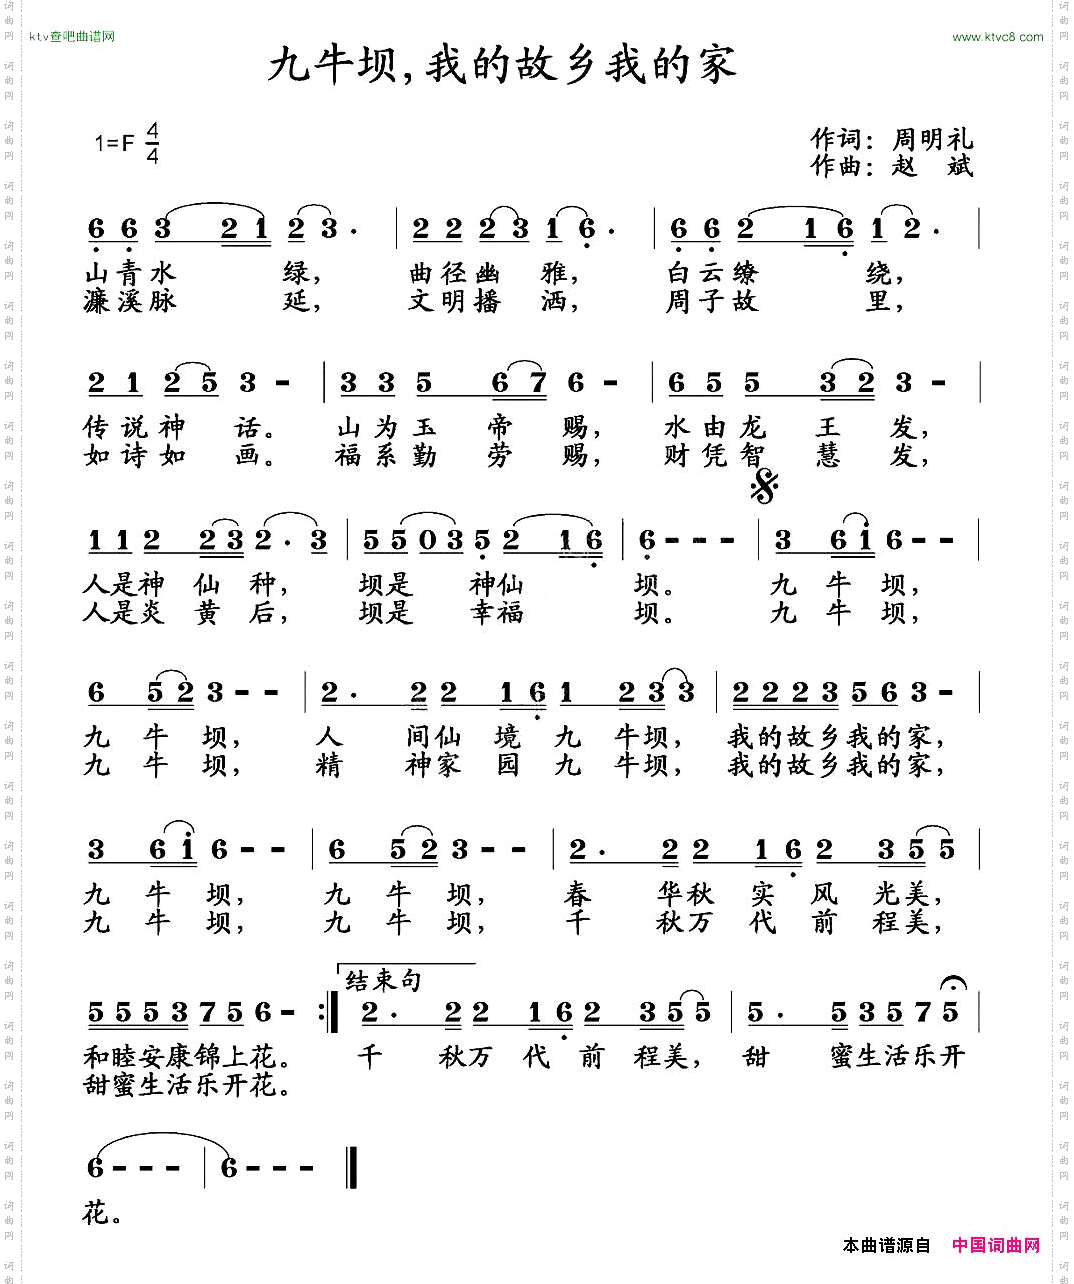 ktv查吧曲谱网
www.ktvc8.com
九牛坝,我的故乡我的家
1=F 4/4
作词：周明礼
作曲：赵 斌
6 6 3 2 1 2 3 · | 2 2 2 3 1 6 · | 6 6 2 1 6 1 2 · |
山青水 绿， 曲径幽 雅， 白云缭 绕，
濂溪脉 延， 文明播 洒， 周子故 里，
2 1 2 5 3 - | 3 3 5 6 7 6 - | 6 5 5 3 2 3 - |
传说神 话。 山为玉 帝 赐， 水由龙 王 发，
如诗如 画。 福系勤 劳 赐， 财凭智 慧 发，
1 1 2 2 3 2 · 3 | 5 5 0 3 5 2 1 6 | 6 - - - | 3 6 i 6 - - |
人是神 仙 种， 坝是 神仙 坝。 九 牛 坝，
人是炎 黄 后， 坝是 幸福 坝。 九 牛 坝，
6 5 2 3 - - | 2 · 2 2 1 6 1 2 3 3 | 2 2 2 3 5 6 3 - |
九 牛 坝， 人 间仙 境 九 牛坝， 我的故乡我的家，
九 牛 坝， 精 神家 园 九 牛坝， 我的故乡我的家，
3 6 i 6 - - | 6 5 2 3 - - | 2 · 2 2 1 6 2 3 5 5 |
九 牛 坝， 九 牛 坝， 春 华秋 实 风 光美，
九 牛 坝， 九 牛 坝， 千 秋万 代 前 程美，
结束句
5 5 5 3 7 5 6 - :| 2 · 2 2 1 6 2 3 5 5 | 5 · 5 3 5 7 5 |
和睦安康锦上花。 千 秋万 代 前 程美， 甜 蜜生活乐开
甜蜜生活乐开花。
6 - - - | 6 - - - ‖
花。
本曲谱源自 中国词曲网